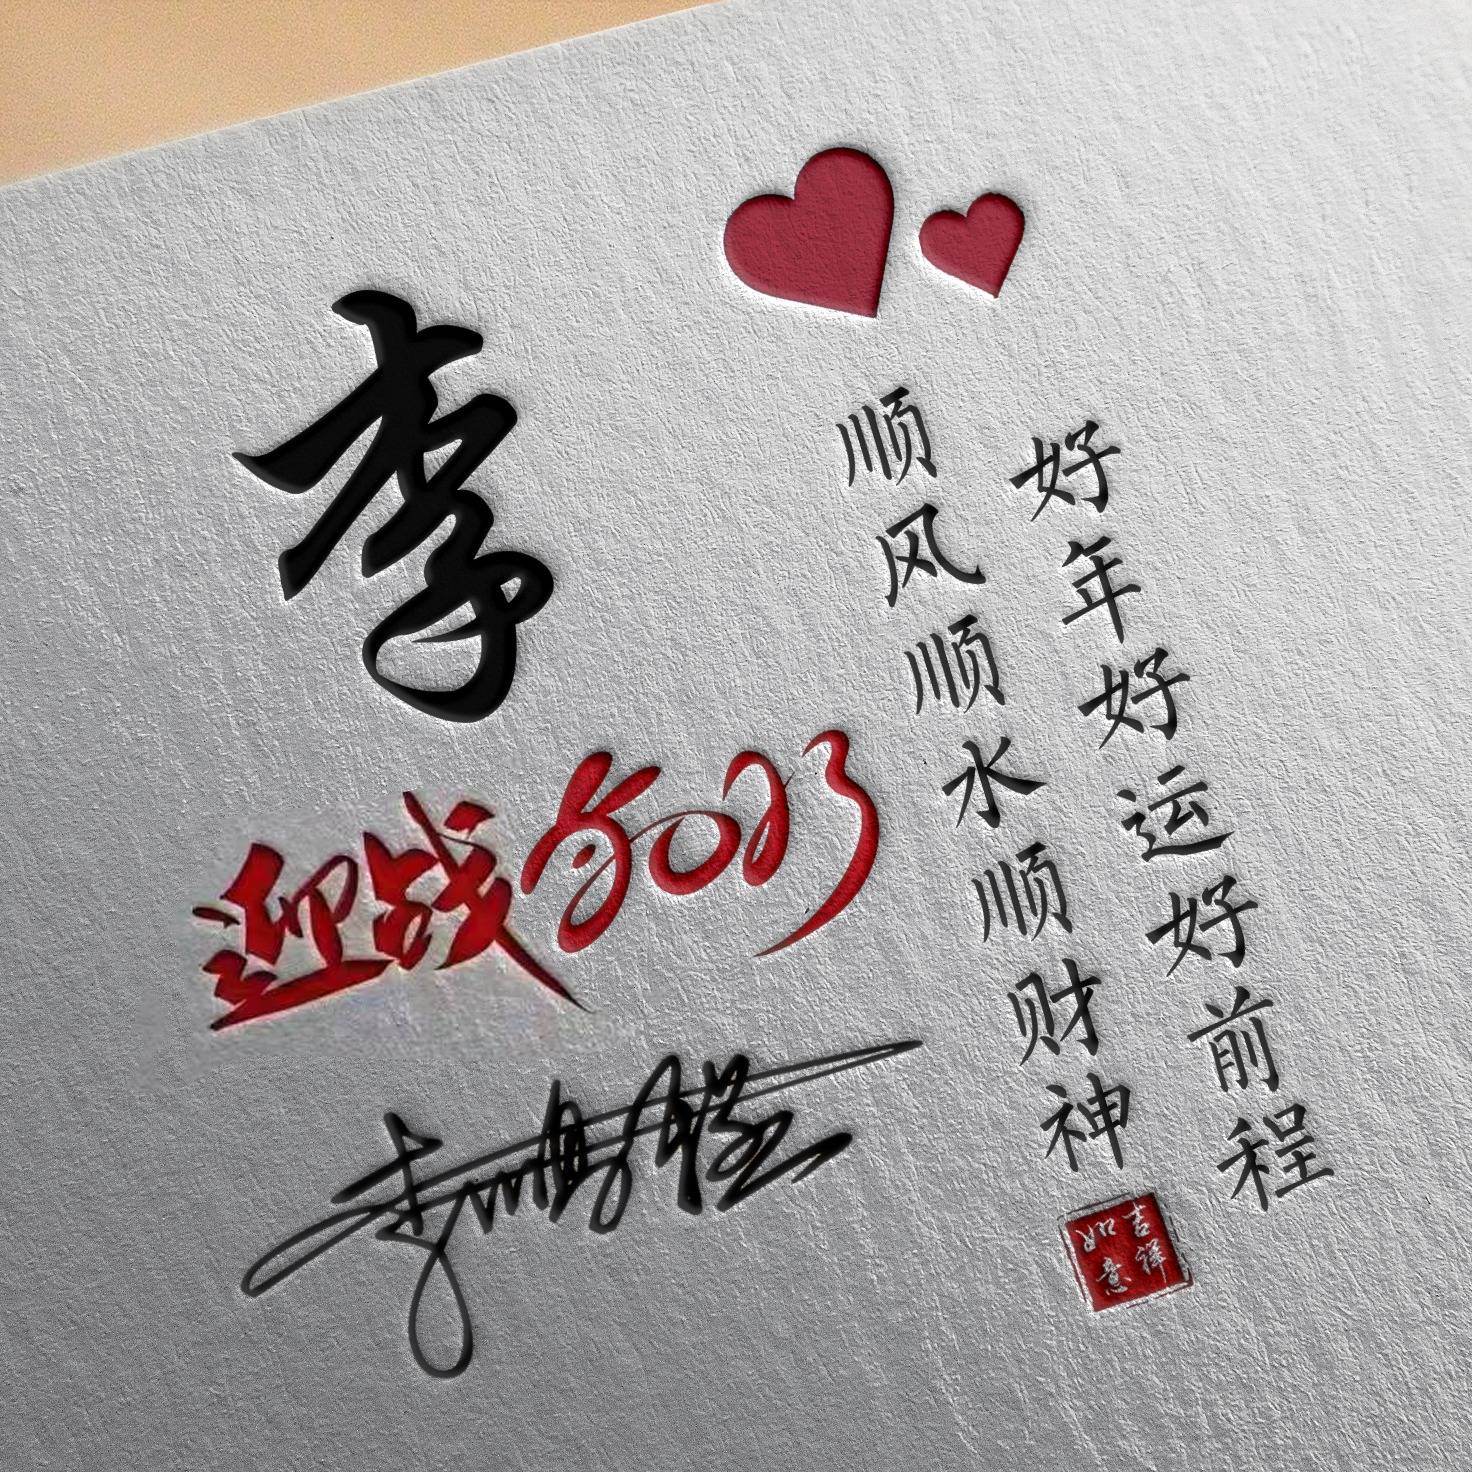 李
迎战2023
好年好运好前程
顺风顺水顺财神
吉祥
如意